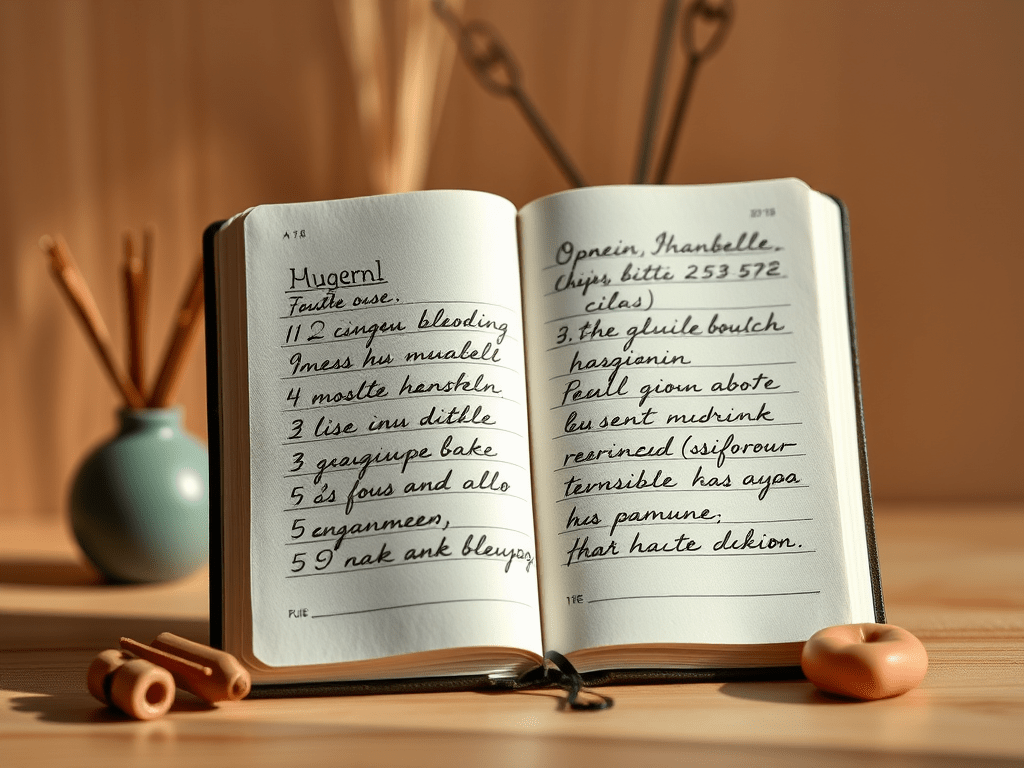 A 7 8
Mugernl
Foutle ouse.
11 2 cingeu bleoding
9mess hu muabell
4 mostte henskeln
3 lise inu ditkle
3 geagiupe bake
5 o's fous and allo
5 enganmeen,
5 9 nak ank bleuyog
FUIE
Opnein, Ihanbelle.
Chijes, bittc 253 572
cilas)
3. the gluile boulch
hasgionin
Peull giown abote
leu sent medrink
reerinced (ssiforour
ternsible has aypa
hus pamune;
thar haute dekion.